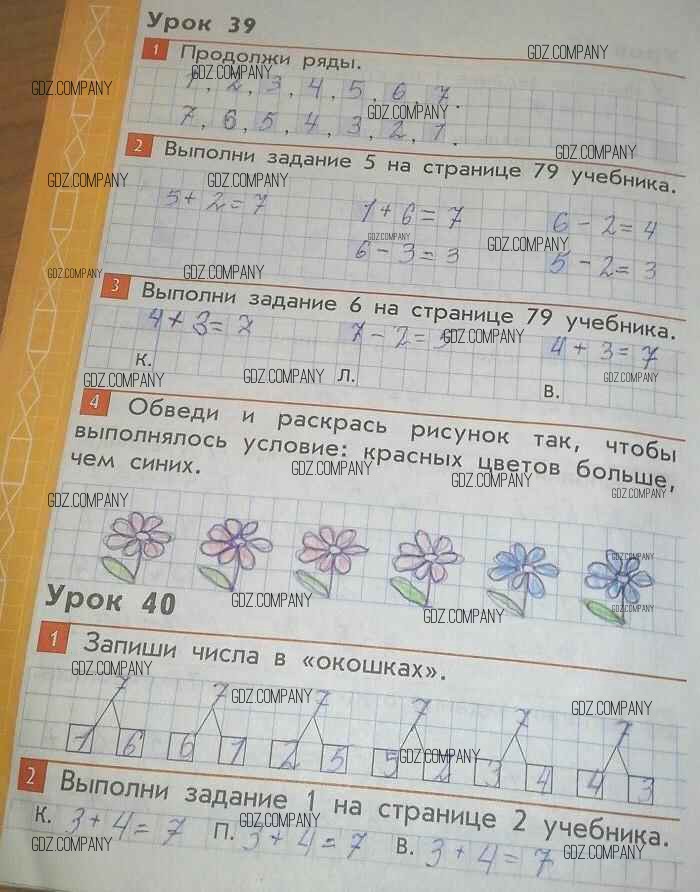 Урок 39
GDZ.COMPANY
1 Продолжи ряды.
GDZ.COMPANY
GDZ.COMPANY
1, 2, 3, 4, 5, 6, 7.
GDZ.COMPANY
7, 6, 5, 4, 3, 2, 1.
2 Выполни задание 5 на странице 79 учебника.
GDZ.COMPANY
GDZ.COMPANY GDZ.COMPANY
5 + 2 = 7 1 + 6 = 7 6 - 2 = 4
GDZ.COMPANY GDZ.COMPANY
6 - 3 = 3 5 - 2 = 3
GDZ.COMPANY GDZ.COMPANY
3 Выполни задание 6 на странице 79 учебника.
4 + 3 = 7 7 - 2 = 5 4 + 3 = 7
GDZ.COMPANY
К. Л. В.
GDZ.COMPANY GDZ.COMPANY GDZ.COMPANY
4 Обведи и раскрась рисунок так, чтобы
выполнялось условие: красных цветов больше,
чем синих.
GDZ.COMPANY GDZ.COMPANY GDZ.COMPANY
GDZ.COMPANY
GDZ.COMPANY
Урок 40
GDZ.COMPANY GDZ.COMPANY GDZ.COMPANY
1 Запиши числа в «окошках».
GDZ.COMPANY
7 7 7 7 7 7
GDZ.COMPANY GDZ.COMPANY
1 6 6 1 2 5 5 2 3 4 4 3
GDZ.COMPANY
2 Выполни задание 1 на странице 2 учебника.
К. 3 + 4 = 7 П. 3 + 4 = 7 В. 3 + 4 = 7
GDZ.COMPANY GDZ.COMPANY GDZ.COMPANY